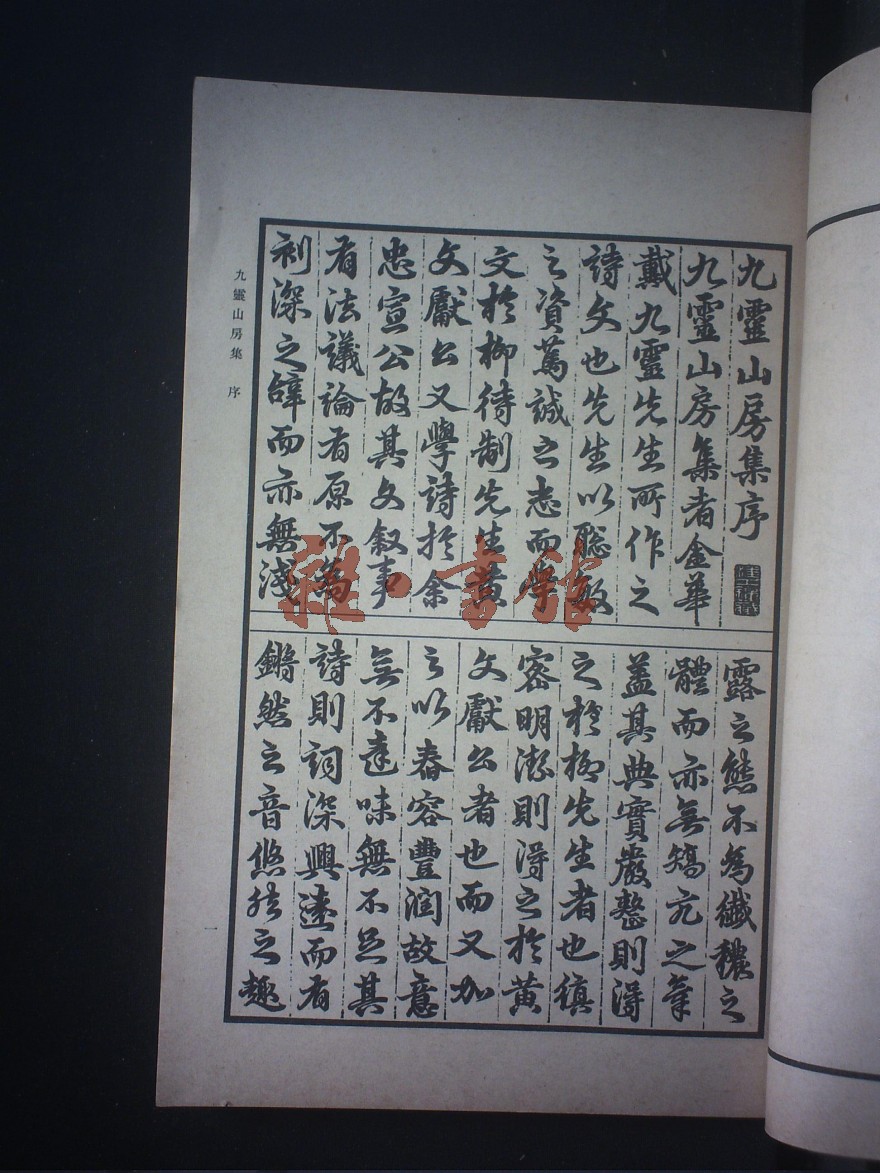 九靈山房集序
九靈山房集者金華
戴九靈先生所作之
詩文也先生以聰敏
之資篤誠之志而學
文於柳待制先生黃
文獻公又學詩於余
忠宣公故其文叙事
有法議論有原不為
刻深之辭而亦無淺
露之態不為纖穠之
體而亦無矯亢之筆
蓋其典實嚴整則得
之於柳先生者也縝
密明潔則得之於黃
文獻公者也而又加
之以舂容豐潤故意
無不達味無不足其
詩則詞深興遠而有
鏘然之音悠然之趣
九靈山房集 序
一
雜·書館